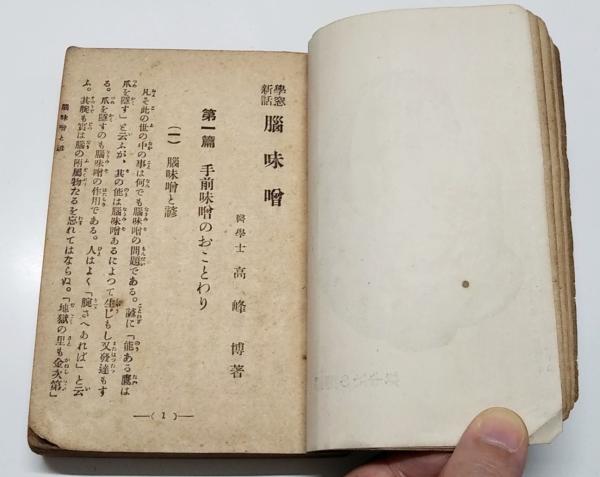 學窓新話 腦味噌
醫學士 高峰博著
第一篇 手前味噌のおことわり
(一) 腦味噌と諺
凡そ此の世の中の事は何でも腦味噌の問題である。諺に「能ある鷹は
爪を隱す」と云ふが、其の能は腦味噌あるによつて生じもし又發達もす
る。爪を隱すのも腦味噌の作用である。人はよく「腕さへあれば」と云
ふ。其腕も實は腦の附屬物たるを忘れてはならぬ。「地獄の里も金次第」
腦味噌と諺
—( 1 )—